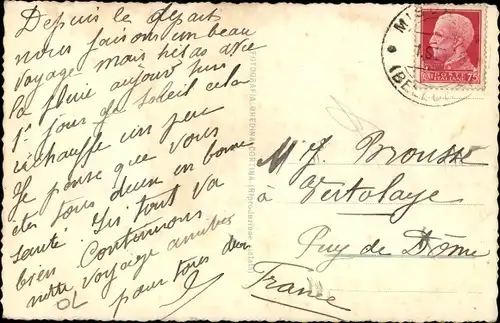 Depuis le départ
nous faisons un beau
voyage mais hélas avec
la pluie aujourd'hui
1er jour de soleil cela
réchauffe un peu
Je pense que vous
êtes tous deux en bonne
santé. Ici tout va
bien Continuons
notre voyage amitiés
pour tous deux
OL
FOTOGRAFIA GHEDINA CORTINA
POSTE ITALIANE
75
MIS
(BELLU
M J. Brousse
à Vertolaye
Puy de Dôme
France